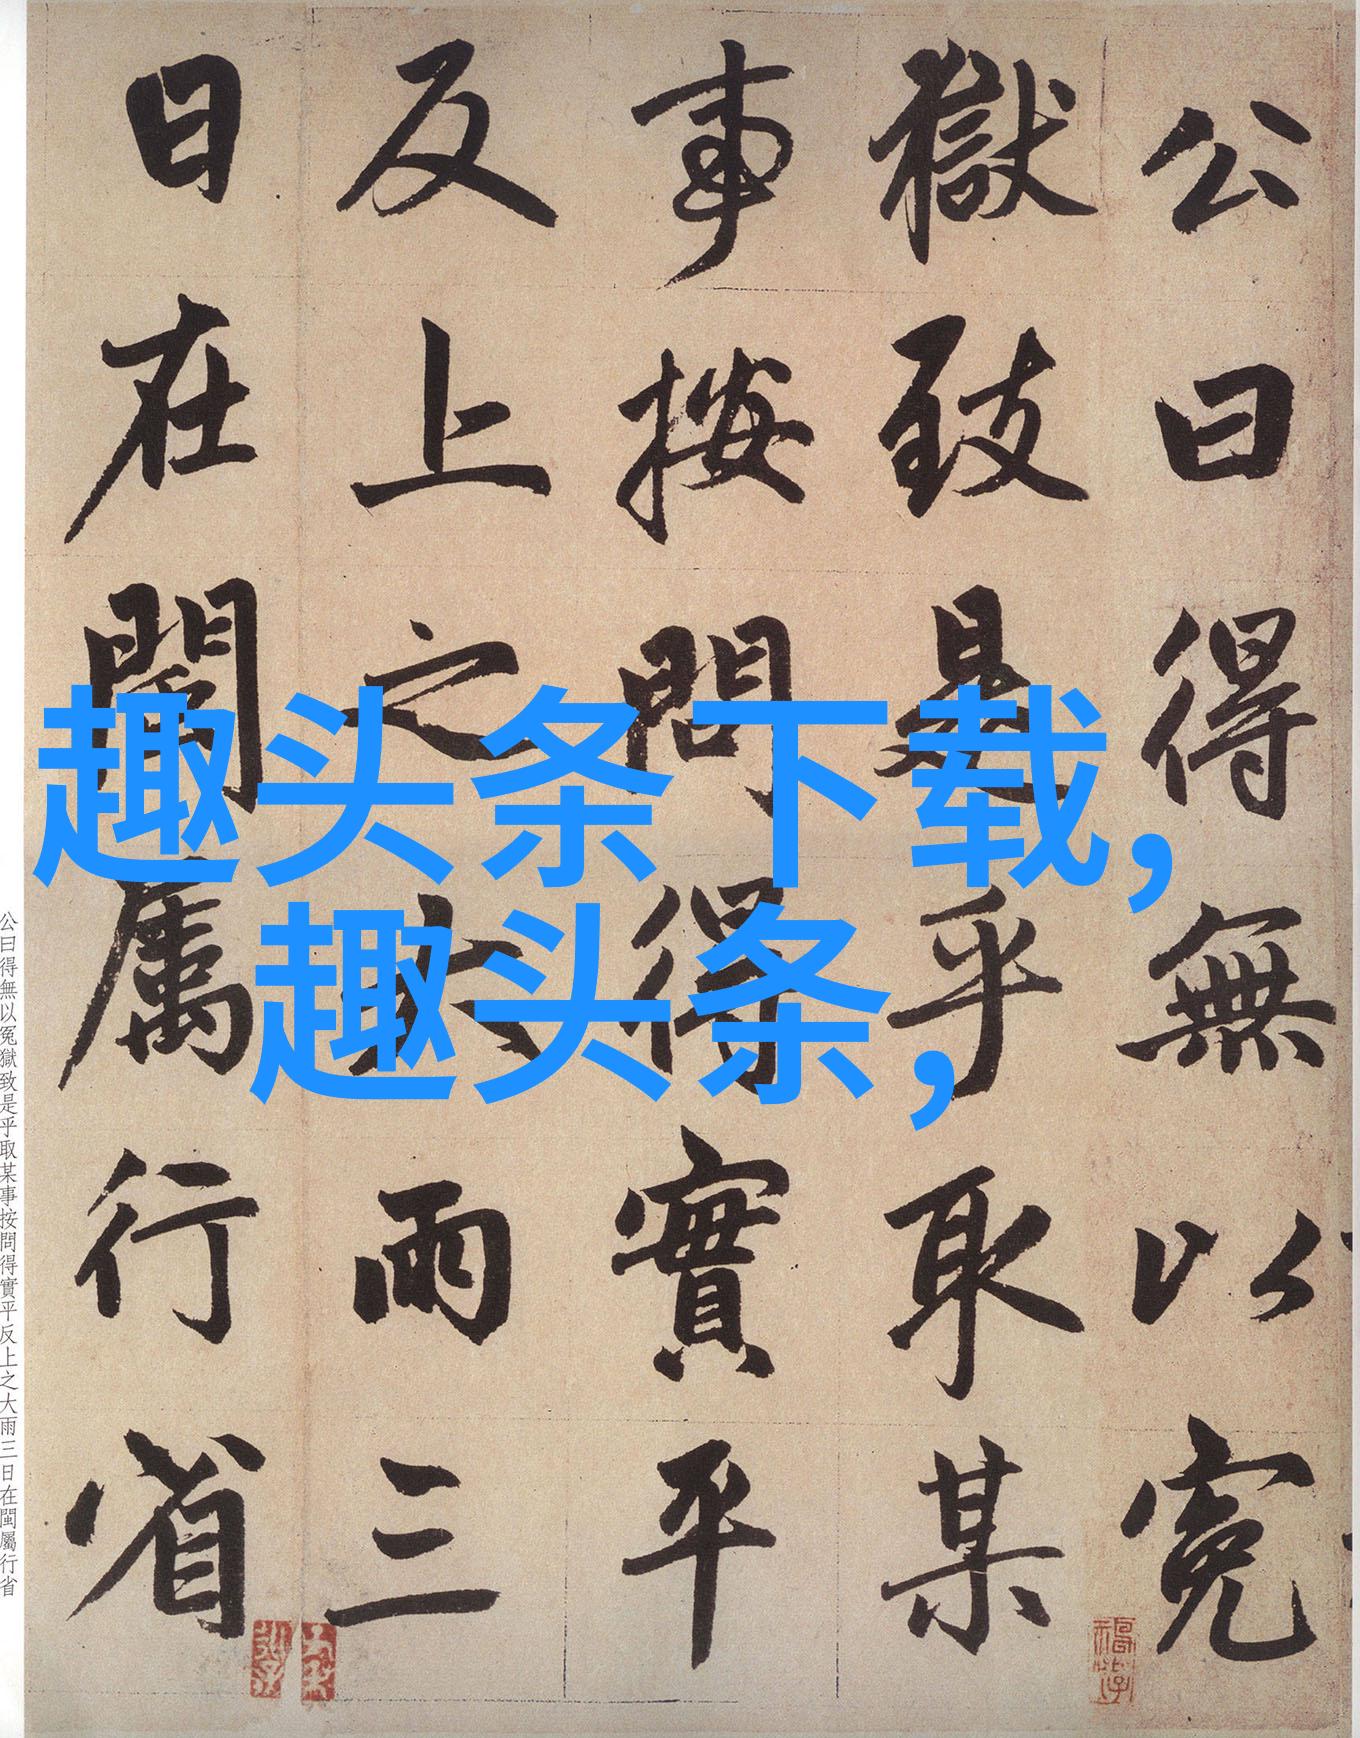 公曰得無以冤
獄致是乎取某
事按問得實平
反上之大雨三
日在閩屬行省
趣头条下载,
趣头条,
公曰得無以冤獄致是乎取某事按問得實平反上之大雨三日在閩屬行省